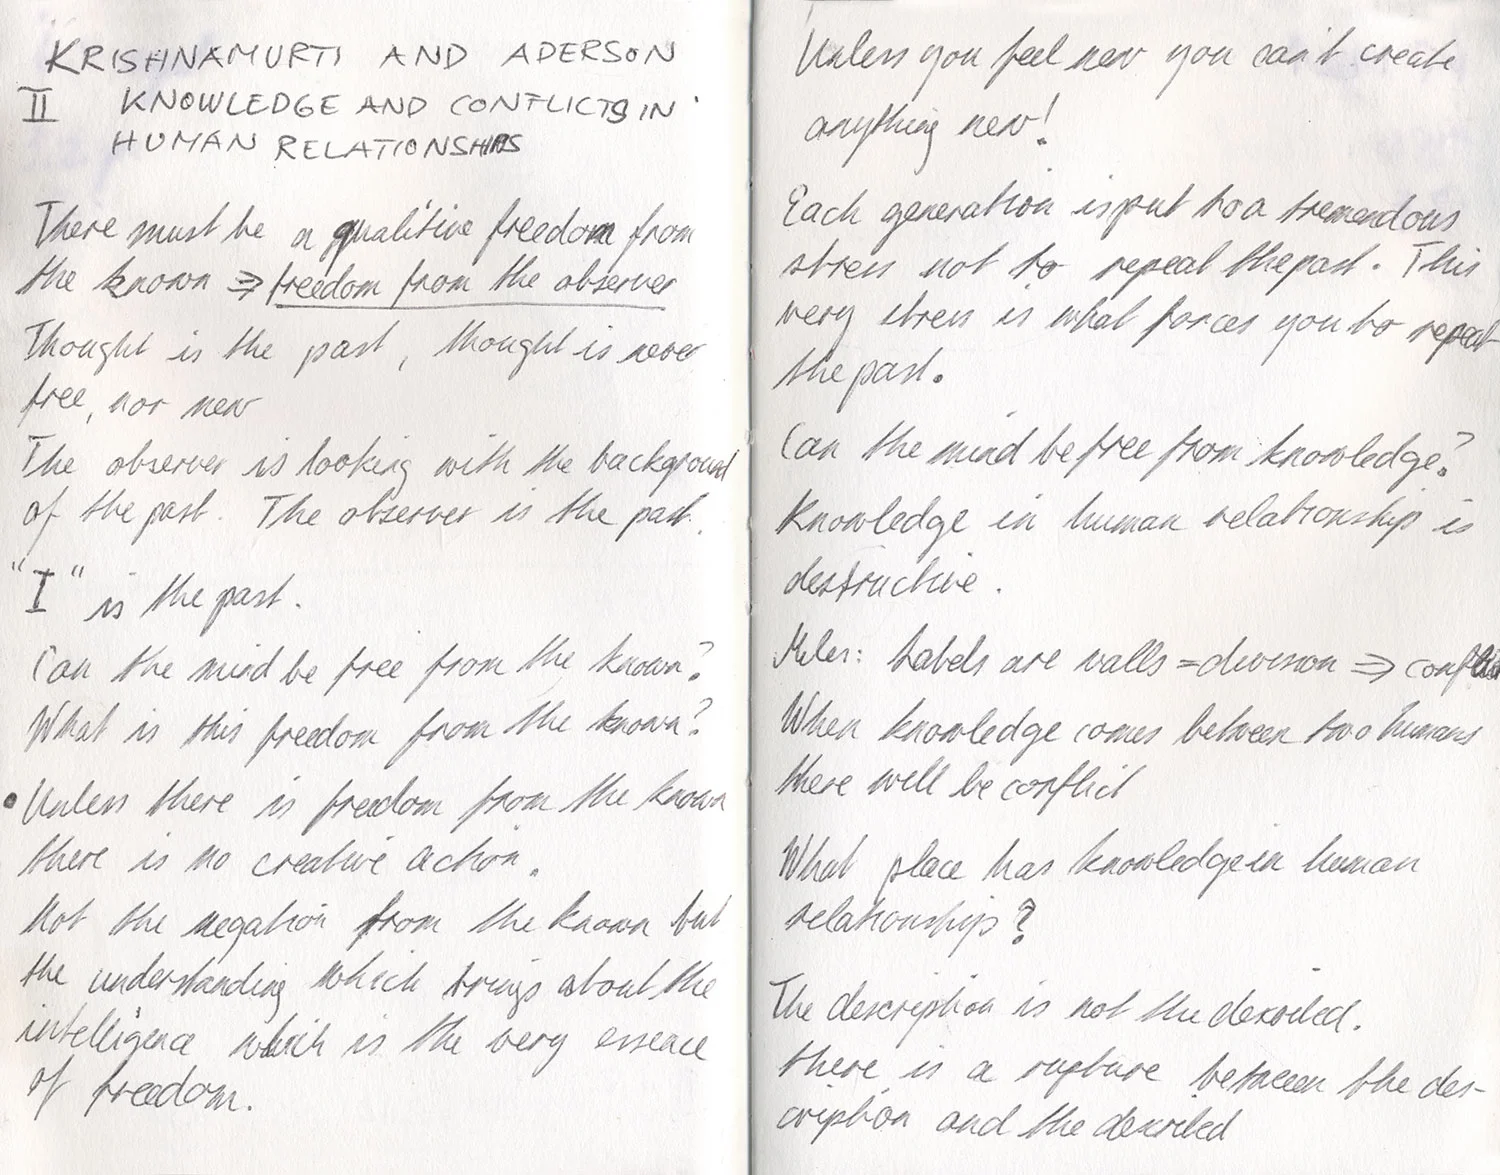 KRISHNAMURTI AND ADERSON
II KNOWLEDGE AND CONFLICTS IN
HUMAN RELATIONSHIPS
There must be a qualitive freedom from
the known ⇒ freedom from the observer
Thought is the past, thought is never
free, nor new
The observer is looking with the background
of the past. The observer is the past.
"I" is the past.
Can the mind be free from the known?
What is this freedom from the known?
• Unless there is freedom from the known
there is no creative action.
Not the negation from the known but
the understanding which brings about the
intelligence which is the very essence
of freedom.
Unless you feel new you can't create
anything new!
Each generation is put to a tremendous
stress not to repeat the past. This
very stress is what forces you to repeat
the past.
Can the mind be free from knowledge?
Knowledge in human relationship is
destructive.
Labels are walls = division ⇒ conflict
When knowledge comes between two humans
there will be conflict
What place has knowledge in human
relationship?
The description is not the descriled.
there is a rupture between the des-
cription and the descriled